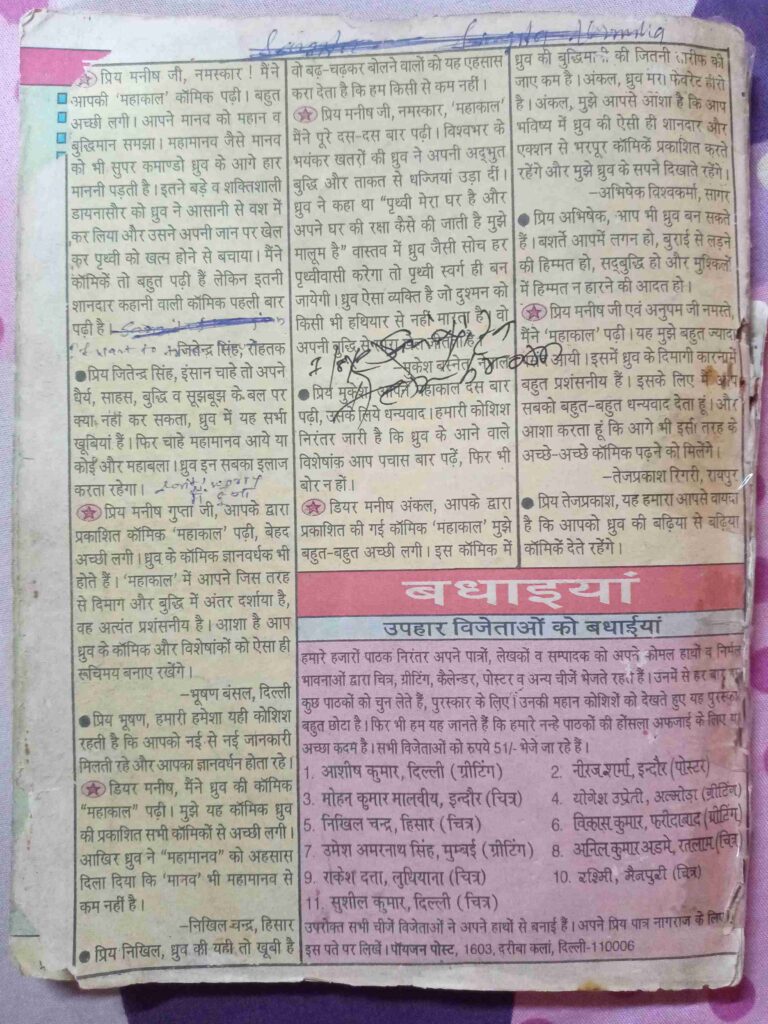 प्रिय मनीष जी, नमस्कार ! मैंने
आपकी 'महाकाल' कॉमिक पढ़ी। बहुत
अच्छी लगी। आपने मानव को महान व
बुद्धिमान समझा। महामानव जैसे मानव
को भी सुपर कमाण्डो ध्रुव के आगे हार
माननी पड़ती है। इतने बड़े व शक्तिशाली
डायनासौर को ध्रुव ने आसानी से वश में
कर लिया और उसने अपनी जान पर खेल
कर पृथ्वी को खत्म होने से बचाया। मैंने
कॉमिकें तो बहुत पढ़ी हैं लेकिन इतनी
शानदार कहानी वाली कॉमिक पहली बार
पढ़ी है।
-जितेन्द्र सिंह, रोहतक
● प्रिय जितेन्द्र सिंह, इंसान चाहे तो अपने
धैर्य, साहस, बुद्धि व सूझबूझ के बल पर
क्या नहीं कर सकता, ध्रुव में यह सभी
खूबियां हैं। फिर चाहे महामानव आये या
कोई और महाबला। ध्रुव इन सबका इलाज
करता रहेगा।
प्रिय मनीष गुप्ता जी, आपके द्वारा
प्रकाशित कॉमिक 'महाकाल' पढ़ी, बेहद
अच्छी लगी। ध्रुव के कॉमिक ज्ञानवर्धक भी
होते हैं। 'महाकाल' में आपने जिस तरह
से दिमाग और बुद्धि में अंतर दर्शाया है,
वह अत्यंत प्रशंसनीय है। आशा है आप
ध्रुव के कॉमिक और विशेषांकों को ऐसा ही
रूचिमय बनाए रखेंगे।
-भूषण बंसल, दिल्ली
● प्रिय भूषण, हमारी हमेशा यही कोशिश
रहती है कि आपको नई से नई जानकारी
मिलती रहे और आपका ज्ञानवर्धन होता रहे।
डियर मनीष, मैंने ध्रुव की कॉमिक
"महाकाल" पढ़ी। मुझे यह कॉमिक ध्रुव
की प्रकाशित सभी कॉमिकों से अच्छी लगी।
आखिर ध्रुव ने "महामानव" को अहसास
दिला दिया कि 'मानव' भी महामानव से
कम नहीं है।
-निखिल चन्द्र, हिसार
● प्रिय निखिल, ध्रुव की यही तो खूबी है
वो बढ़-चढ़कर बोलने वालों को यह एहसास
करा देता है कि हम किसी से कम नहीं।
प्रिय मनीष जी, नमस्कार, 'महाकाल'
मैंने पूरे दस-दस बार पढ़ी। विश्वभर के
भयंकर खतरों की ध्रुव ने अपनी अद्भुत
बुद्धि और ताकत से धज्जियां उड़ा दीं।
ध्रुव ने कहा था "पृथ्वी मेरा घर है और
अपने घर की रक्षा कैसे की जाती है मुझे
मालूम है" वास्तव में ध्रुव जैसी सोच हर
पृथ्वीवासी करेगा तो पृथ्वी स्वर्ग ही बन
जायेगी। ध्रुव ऐसा व्यक्ति है जो दुश्मन को
किसी भी हथियार से नहीं मारता है। वो
अपनी बुद्धि से
-मुकेश बस्नेत,
● प्रिय मुकेश, आपने महाकाल दस बार
पढ़ी, उसके लिये धन्यवाद। हमारी कोशिश
निरंतर जारी है कि ध्रुव के आने वाले
विशेषांक आप पचास बार पढ़ें, फिर भी
बोर न हों।
डियर मनीष अंकल, आपके द्वारा
प्रकाशित की गई कॉमिक 'महाकाल' मुझे
बहुत-बहुत अच्छी लगी। इस कॉमिक में
ध्रुव की बुद्धिमानी की जितनी तारीफ की
जाए कम है। अंकल, ध्रुव मेरा फेवरेट हीरो
है। अंकल, मुझे आपसे आशा है कि आप
भविष्य में ध्रुव की ऐसी ही शानदार और
एक्शन से भरपूर कॉमिकें प्रकाशित करते
रहेंगे और मुझे ध्रुव के सपने दिखाते रहेंगे।
-अभिषेक विश्वकर्मा, सागर
● प्रिय अभिषेक, आप भी ध्रुव बन सकते
हैं। बशर्ते आपमें लगन हो, बुराई से लड़ने
की हिम्मत हो, सद्बुद्धि हो और मुश्किलों
में हिम्मत न हारने की आदत हो।
प्रिय मनीष जी एवं अनुपम जी नमस्ते,
मैंने 'महाकाल' पढ़ी। यह मुझे बहुत ज्यादा
आयी। इसमें ध्रुव के दिमागी कारनामें
बहुत प्रशंसनीय हैं। इसके लिए मैं आप
सबको बहुत-बहुत धन्यवाद देता हूं। और
आशा करता हूं कि आगे भी इसी तरह के
अच्छे-अच्छे कॉमिक पढ़ने को मिलेंगे।
-तेजप्रकाश रिगरी, रायपुर
● प्रिय तेजप्रकाश, यह हमारा आपसे वायदा
है कि आपको ध्रुव की बढ़िया से बढ़िया
कॉमिकें देते रहेंगे।
बधाइयां
उपहार विजेताओं को बधाईयां
हमारे हजारों पाठक निरंतर अपने पात्रों, लेखकों व सम्पादक को अपने कोमल हाथों व निर्मल
भावनाओं द्वारा चित्र, ग्रीटिंग, कैलेन्डर, पोस्टर व अन्य चीजें भेजते रहते हैं। उनमें से हर बार हम
कुछ पाठकों को चुन लेते हैं, पुरस्कार के लिए। उनकी महान कोशिशों को देखते हुए यह पुरस्कार
बहुत छोटा है। फिर भी हम यह जानते हैं कि हमारे नन्हे पाठकों की होंसला अफजाई के लिए यह
अच्छा कदम है। सभी विजेताओं को रुपये 51/- भेजे जा रहे हैं।
1. आशीष कुमार, दिल्ली (ग्रीटिंग)
2. नीरज शर्मा, इन्दौर (पोस्टर)
3. मोहन कुमार मालवीय, इन्दौर (चित्र)
4. योगेश उप्रेती, अल्मोड़ा (ग्रीटिंग)
5. निखिल चन्द्र, हिसार (चित्र)
6. विकास कुमार, फरीदाबाद (ग्रीटिंग)
7. उमेश अमरनाथ सिंह, मुम्बई (ग्रीटिंग)
8. अनिल कुमार अडमे, रतलाम (चित्र)
9. राकेश दत्ता, लुधियाना (चित्र)
10. रश्मि, मैनपुरी (चित्र)
11. सुशील कुमार, दिल्ली (चित्र)
उपरोक्त सभी चीजें विजेताओं ने अपने हाथों से बनाई हैं। अपने प्रिय पात्र नागराज के लिए
इस पते पर लिखें। पॉयजन पोस्ट, 1603, दरीबा कलां, दिल्ली-110006